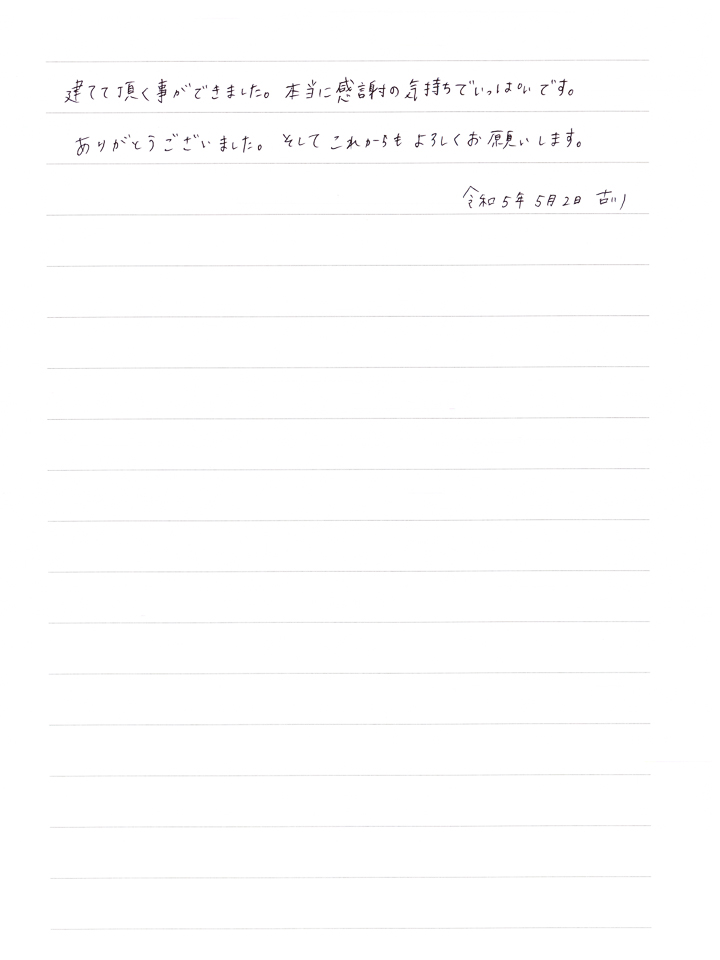 建てて頂く事ができました。本当に感謝の気持ちでいっぱいです。
ありがとうございました。そしてこれからもよろしくお願いします。
令和5年5月2日 吉川